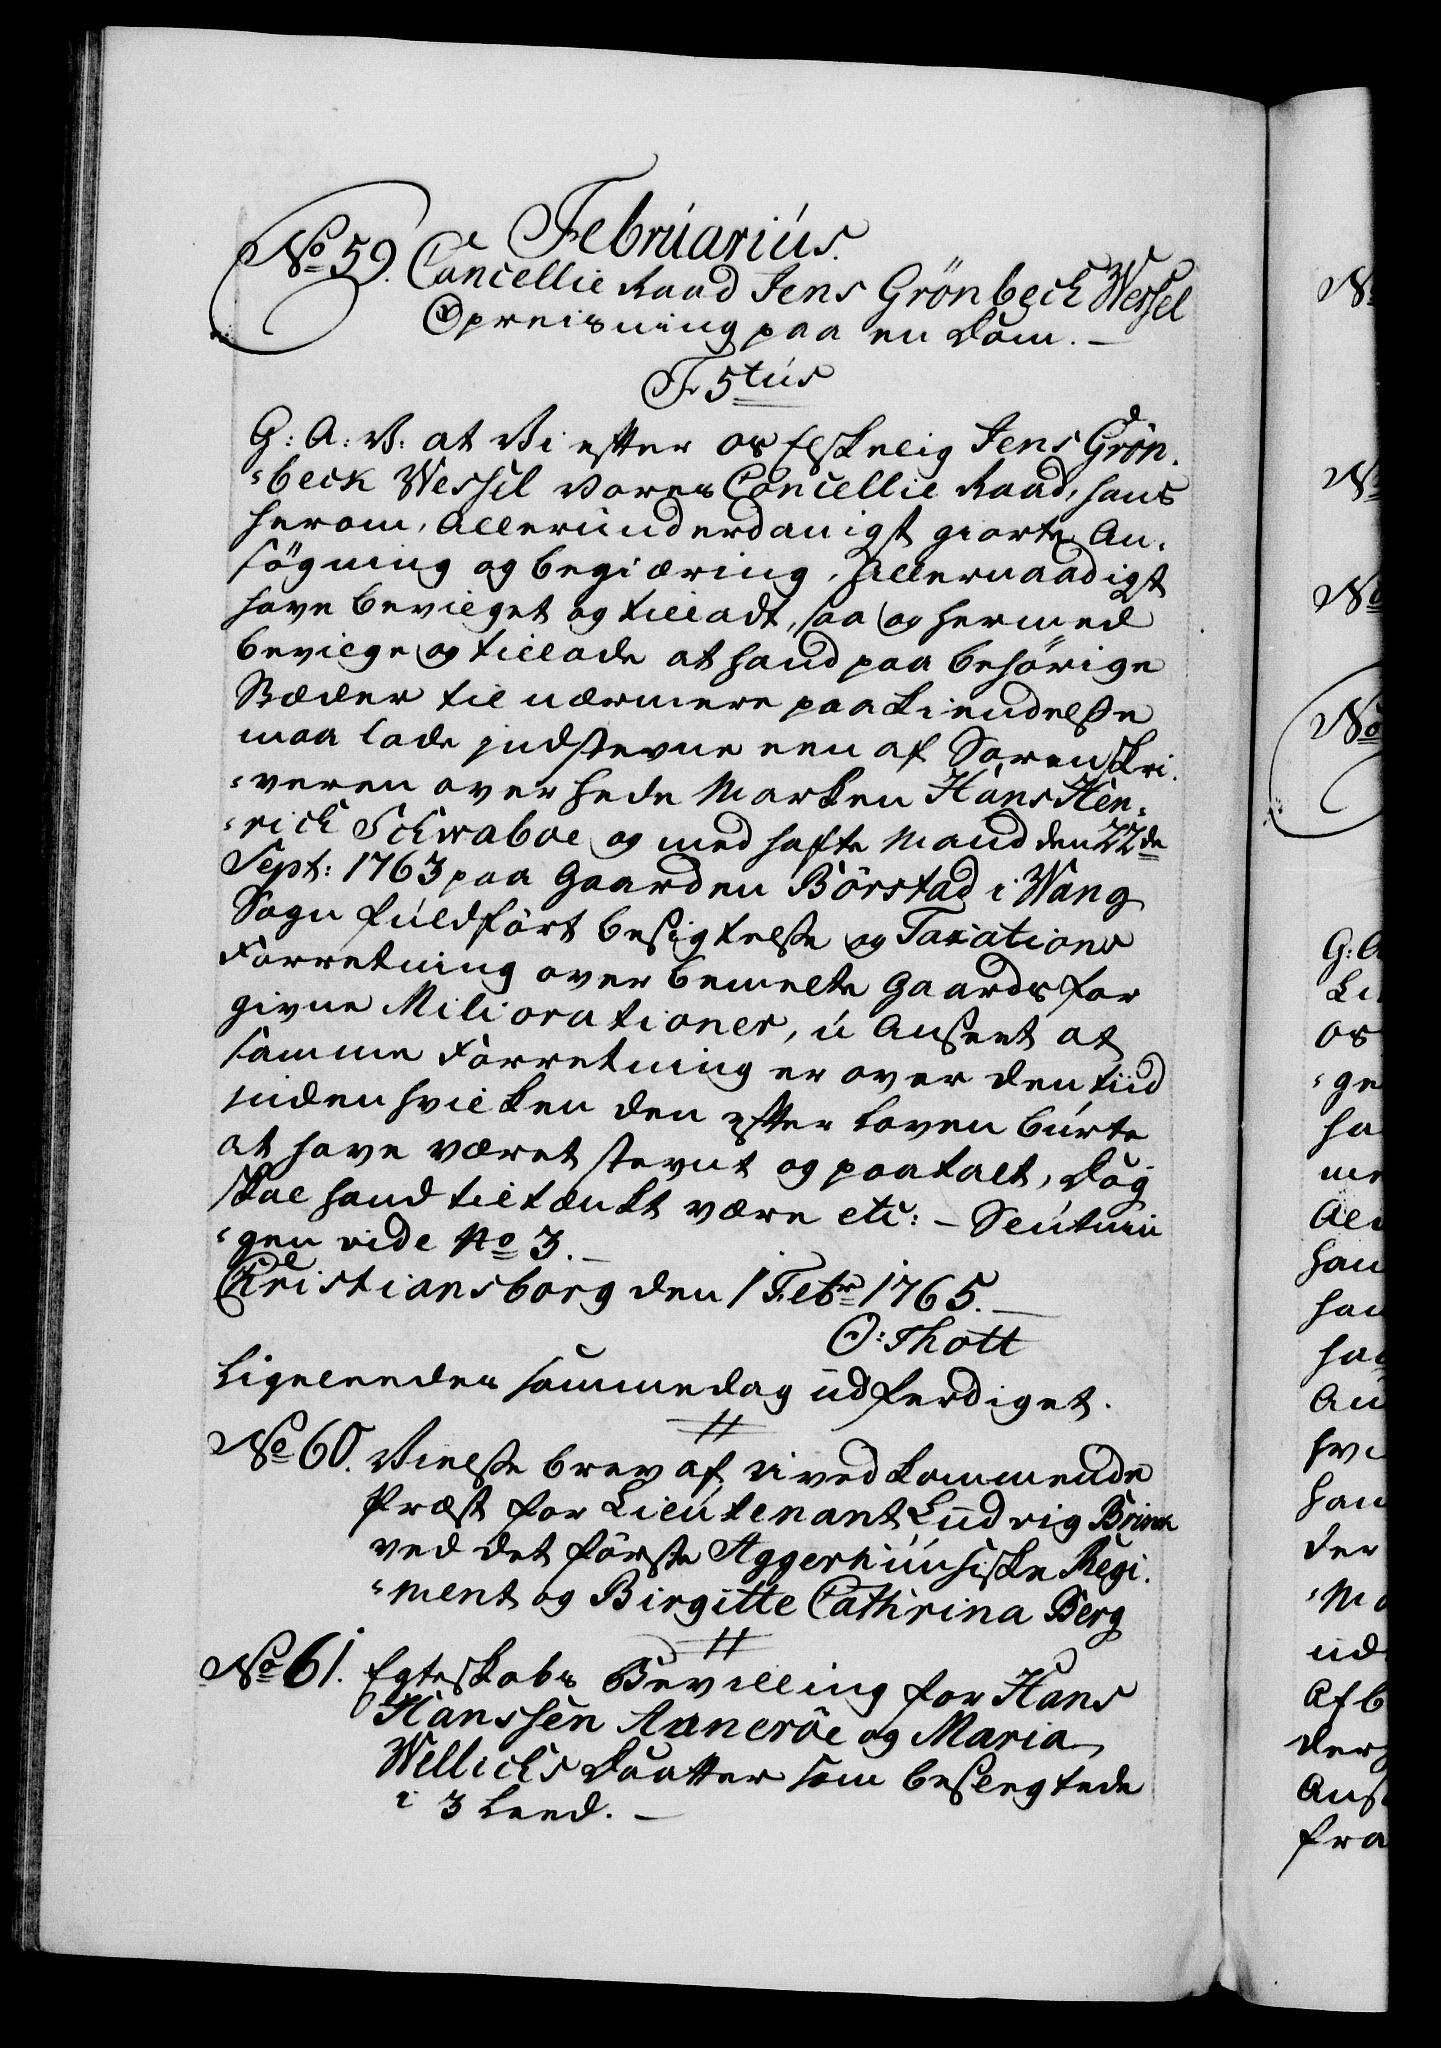 Februarius.
No 59. Cancellie Raad Jens Grönbeck Wessel
Opreisning paa en Dom. —
F. 5tus
G: A: V: at Vi efter os Elskelig Jens Grön-
-beck Wessel Vores Cancellie Raad, hans
herom, Allerunderdanigst giorte An-
søgning og begiæring, Allernaadigst
have bevilget og tilladt, saa og hermed
bevilge og tillade at hand paa behørige
Stæder til nærmere paakiendelße
maa lade indstevne een af Sorenskri-
-veren over Hede Marken Hans Hen-
-rich Schwaboe og med hafte Mænd den 22de
Sept: 1763 paa Gaarden Börstad i Wang
Sogn fuldført besigtelße og Taxations
Forretning over bemelte Gaards for
givne Miliorationer, u Anseet at
samme Forretning er over den tiid
inden hvilken den efter Loven burte
at have været stevnt og paatalt, Dog
skal hand tiltænkt være etc: — Seutui
-gen vide No 3. —
Christiansborg den 1 Febr 1765. —
O: Thott
Ligeleedes samme dag udferdiget.
No 60. Vielße brev af uvedkommende
Præst for Lieutenant Ludvig Brinch
ved det første Aggerhuusiske Regi-
-ment og Birgitte Cathrina Berg
No 61. Egteskabs Bevilling for Hans
Hanssen Aaneröe og Maria
Wellichs Daatter som beslegtede
i 3 Leed. —